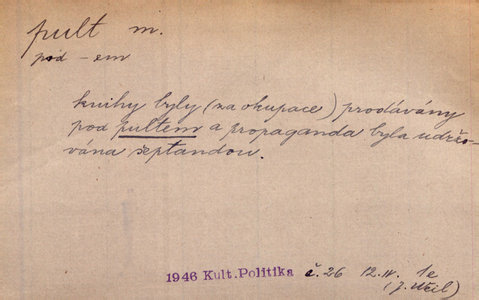 pult m.
pod -em
knihy byly (za okupace) prodávány
pod pultem a propaganda byla udržo-
vána šeptandou.
1946 Kult.Politika č. 26 12.IV. 1e
(J.